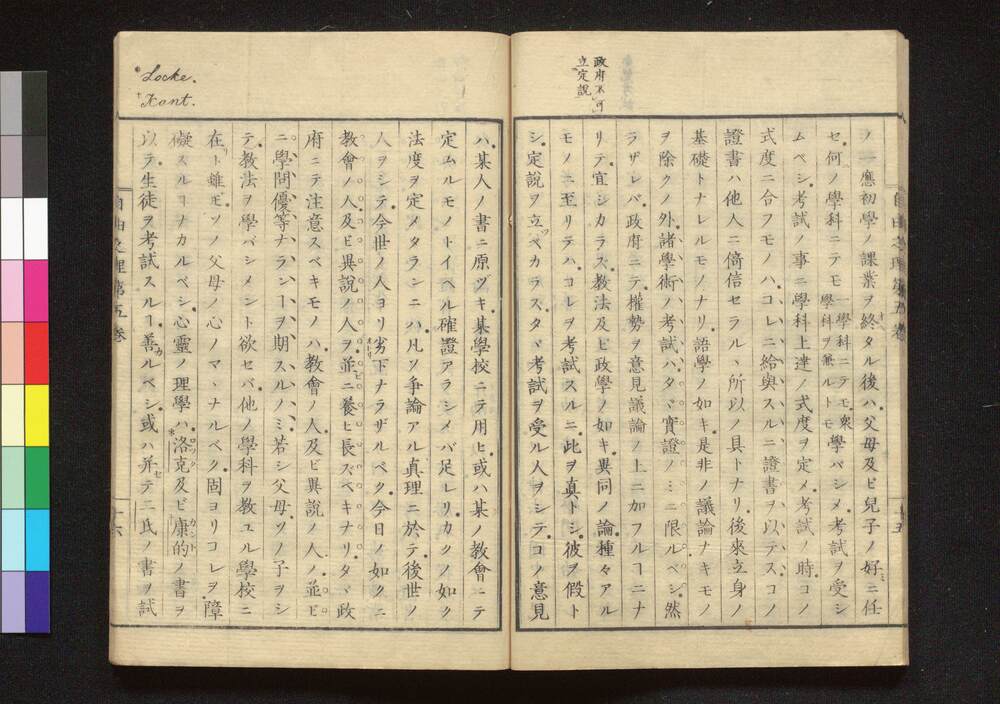 政府不可
立定說
ノ一應初學ノ課業ヲ終タル後ハ父母及ビ兒子ノ好ミニ任
セ何ノ學科ニテモ一學科ニテモ衆學科ヲ兼ルトモ學バシメ考試ヲ受シ
ムベシ考試ノ事ニ學科上達ノ式度ヲ定メ考試ノ時コノ
式度ニ合フモノハコレニ給與スルニ證書ヲ以テスコノ
證書ハ他人ニ倚信セラルヽ所以ノ具トナリ後來立身ノ
基礎トナレルモノナリ語學ノ如キ是非ノ議論ナキモノ
ヲ除クノ外諸學術ノ考試ハタヾ實證ノミニ限ルベシ然
ラザレバ政府ニテ權勢ヲ意見議論ノ上ニ加フルヿニナ
リテ宜シカラズ教法及ビ政學ノ如キ異同ノ論種々アル
モノニ至リテハコレヲ考試スルニ此ヲ真トシ彼ヲ假ト
シ定說ヲ立ベカラスタヾ考試ヲ受ル人ヲシテコノ意見
自由之理第五卷
十五
Locke.
Kant.
ハ某人ノ書ニ原ヅキ某學校ニテ用ヒ或ハ某ノ教會ニテ
定ムルモノトイヘル確證アラシメバ足レリカクノ如ク
法度ヲ定メタランニハ凡ソ爭論アル真理ニ於テ後世ノ
人ヲシテ今世ノ人ヨリ劣下ナラザルベク今日ノ如クニ
教會ノ人及ヒ異說ノ人ヲ並ニ養ヒ長ズベキナリタヾ政
府ニテ注意スベキモノハ教會ノ人及ビ異說ノ人ノ並ビ
ニ學問優等ナランヿヲ期スルノミ若シ父母ソノ子ヲシ
テ教法ヲ學バシメント欲セバ他ノ學科ヲ教ユル學校ニ
在リト雖モソノ父母ノ心ノマヽナルベク固ヨリコレヲ障
礙スルヿナカルベシ心靈ノ理學ハ洛克及ビ康的ノ書ヲ
以テ生徒ヲ考試スルヿ善カルベシ或ハ并セテ二氏ノ書ヲ試
自由之理第五卷
十六